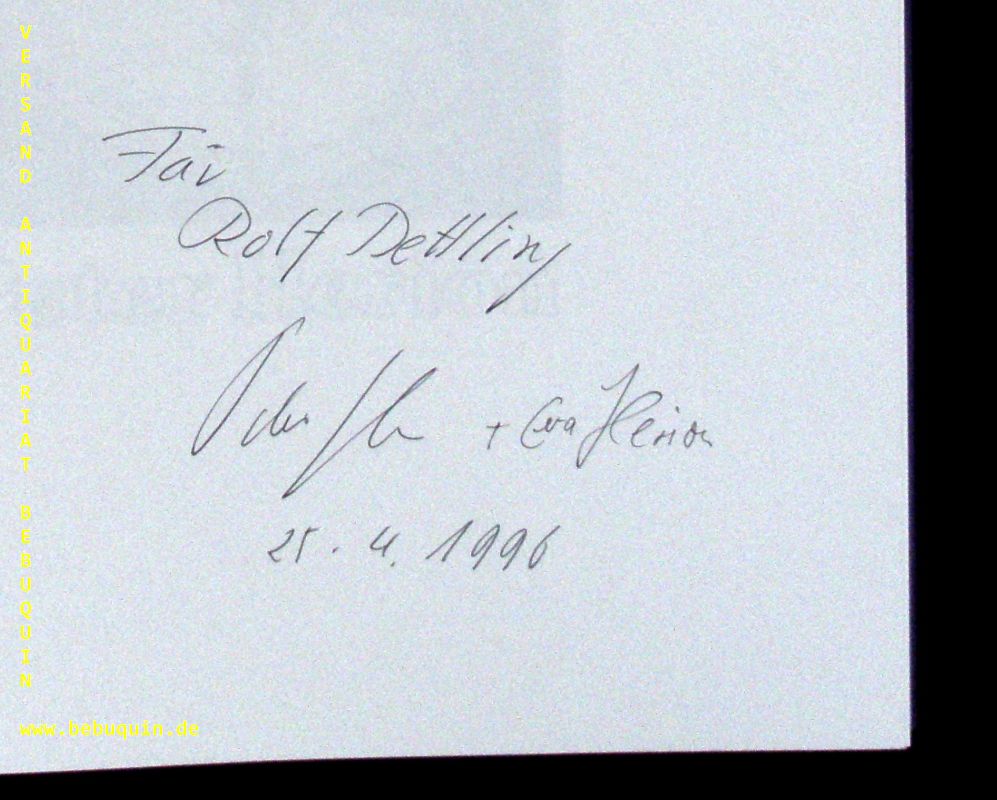 VERSAND ANTIQUARIAT BEBUQUIN
Für
Rolf Dettling
+ Eva
25. 4. 1996
www.bebuquin.de